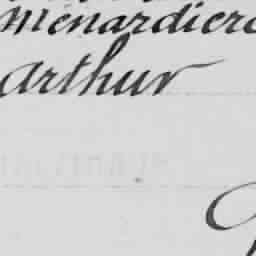 Menardiere
Arthur